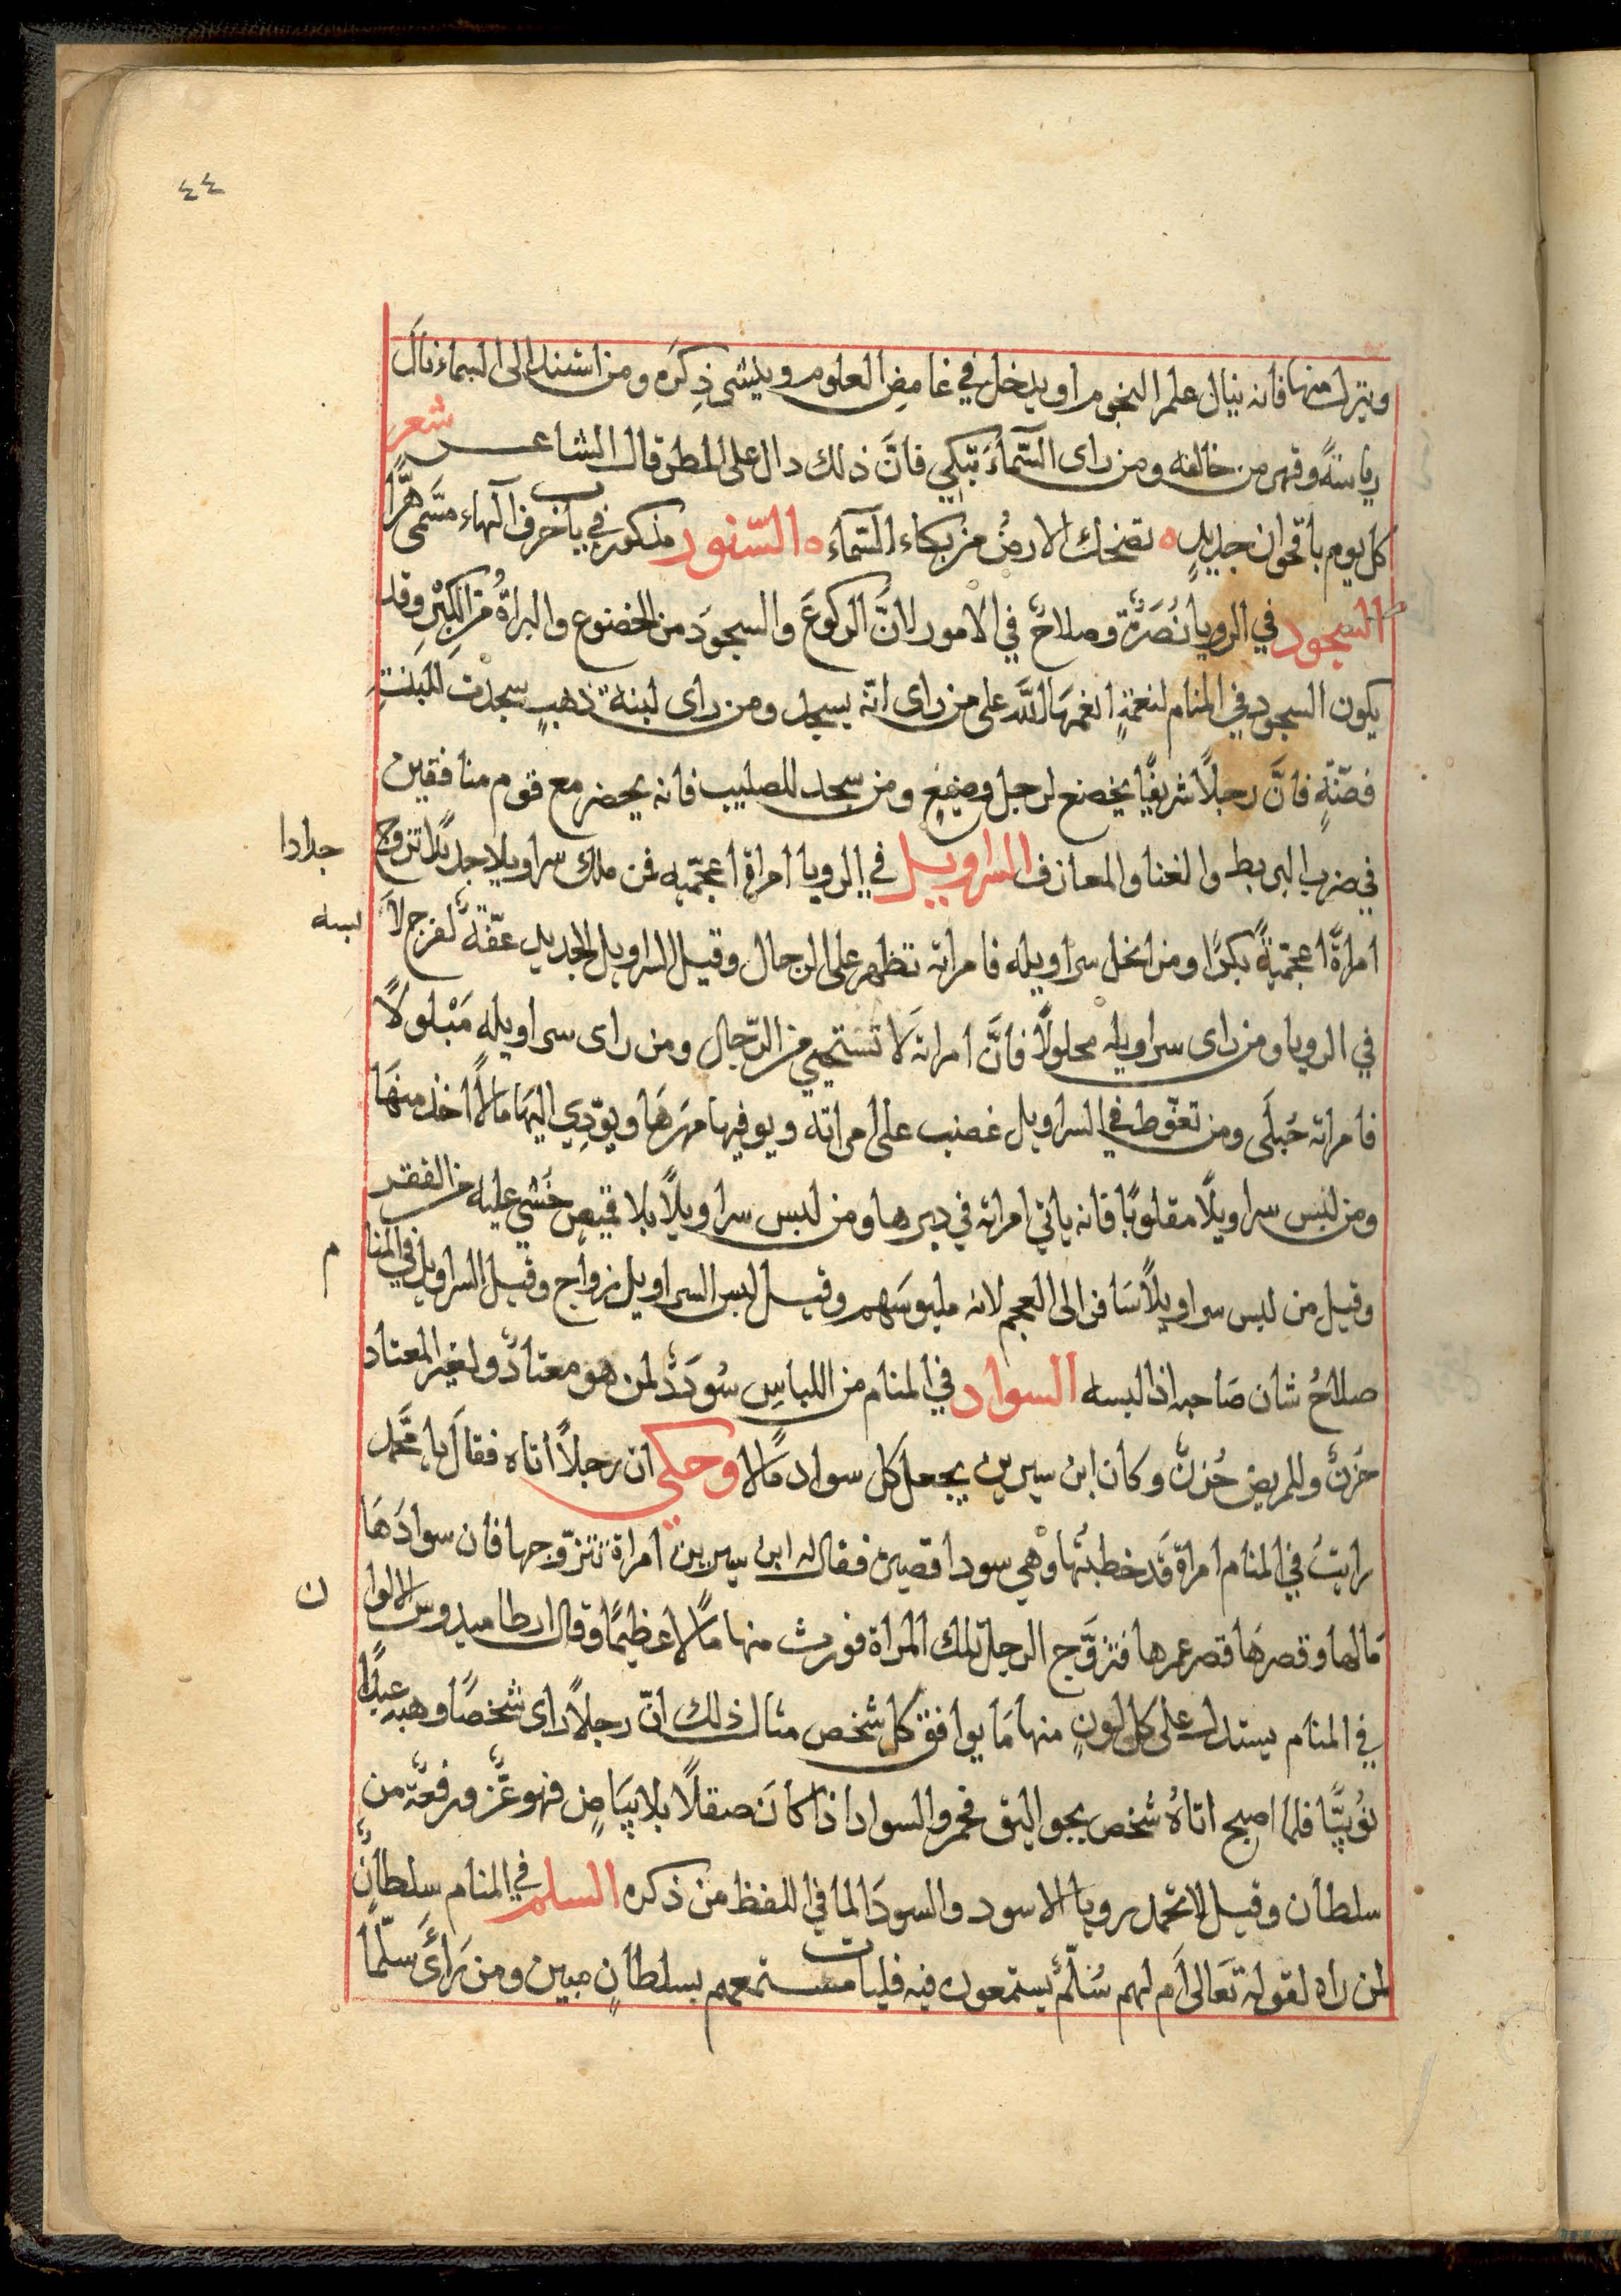 ٤٤
وينزل منها فانه ينال علم النجوم او يدخل في غامض العلوم ويفشى ذِكرَه ومن اسند الى السماء نالَ
رياسةً وقهر من خالفه ومن راى السَّماءَ تبكي فانَّ ذلك دال على المطر قال الشاعـــر شعر
كل يوم باقحوان جديدٍ ه تضحك الارضُ من بكاء السَّماءَ ه السّنور مذكور في باب حرف الهاء مسَمى هرًّا
السجود في الرويا نُصرَةٌ وصلاحٌ في الامور لانَّ الركوعَ والسجودَ من الخضوع والبراةُ من الكِبْرِ وقد
يكون السجود في المنام لنعمَةٍ انعمهَا اللَّه على من راى انّه يسجد ومن راى لبنة ذهبٍ سجدت للبنتِ
فضّةٍ فانَّ رجلاً شريفًا يخضع لرجل وضيعٍ ومن سجد للصليب فانه يحضر مع قوم منافقين
في ضرب البربط والغنا والمعازف السراويل في الرويا امراة اعجميّه فمن ملك سراويلا جديدًا تزوج
جدادا
امراةً اعجميّةً بكرًا ومن انحل سراويله فامراته تظهر على الرجال وقيل السراويل الجديد عفّةٌ لفرج لا
لبسه
في الرويا ومن راى سراويله محلولًا فانَّ امراته لَا تستحيي من الرّجال ومن راى سراويله مَبْلولاً
فامراته حُبلَى ومن تغوّط في السراويل غضب على امراته ويوفيها مهرَهَا ويوّدِي اليهَا مالاً اخذ منهَا
ومن لبس سراويلًا مقلوبًا فانه ياتي امراته في دبرها ومن لبس سراويلًا بلا قميصٍ خُشي عليه من الفقر
وقيل من لبس سراويلاً سَافر الى العجم لانه ملبوسَهم وقيل لبس السراويل زواج وقيل السراويل في المنا
م
صلاحُ شان صَاحبه اذا لبسه السواد في المنام من اللباسِ سُودَدٌ لمن هو معتادٌ ولغير المعتاد
حَزنٌ وللمريض حُزنٌ وكان ابن سيرين يجعل كل سواد مَالا وحكي ان رجلاً أتاه فقالَ يا محَّمد
رايتُ في المنام امراة قَد خطبتُها وهي سودا قصيرة فقال له ابن سيرين امراة تتزوّجها فان سوادَهَا
مَالها وقصرهَا قصر عمرها فتزوَّج الرجل تلك المراة فورث منها مَالًا عظيمًا وقال ارطاميدوس الالوا
ن
في المنام يستدل على كل لونٍ منها مَا يوافق كل شخص مثال ذلك انّ رجلاً راى شخصًا وهبه عبدًا
نوُبيّا فلما اصبح اتاهُ شخص بجوالق فحم والسواد اذا كانَ صقلًا بلا بيَاضٍ فهو عزٌّ ورفعةٌ من
سلطان وقيل لا تحمد رويا الاسود والسودَا لما في اللفظ من ذكره السلم في المنام سلطانٌ
لمن راه لقوله تعَالى اَم لهم سُلّمٌ يستمعون فيه فليات مستمعهم بسلطانٍ مبين ومن رَأىَ سلّمًا